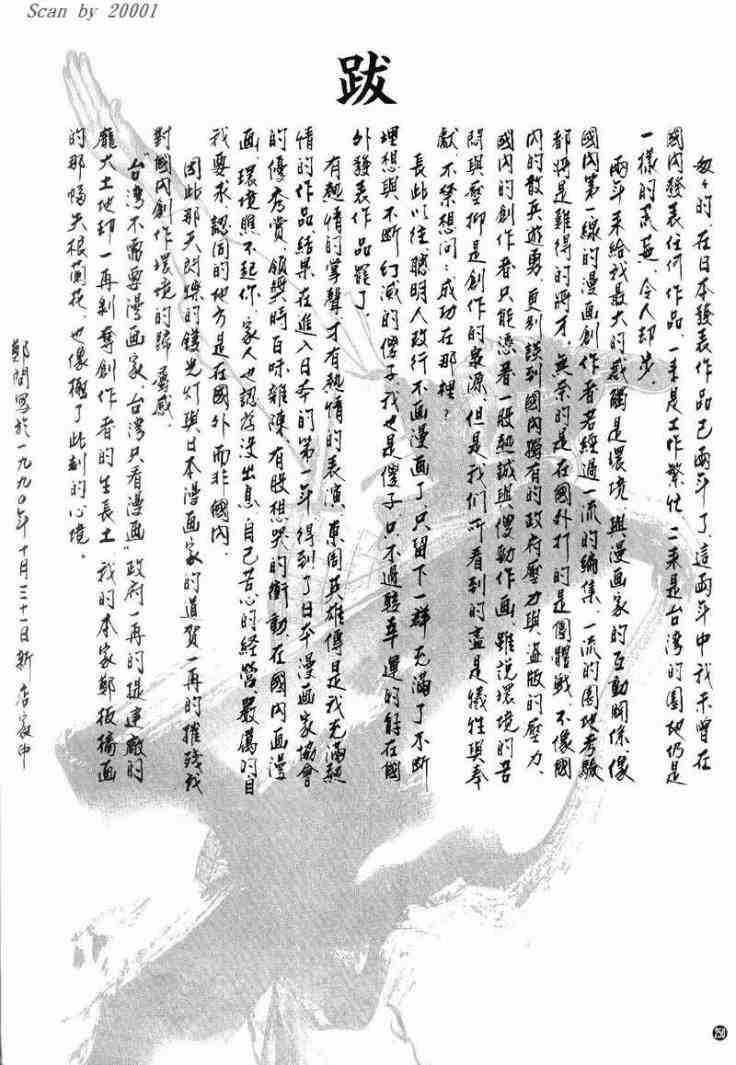 Scan by 20001
跋
匆匆的,在日本發表作品已兩年了,這兩年中我未曾在
國內發表任何作品,一來是工作繁忙,二來是台灣的園地仍是
一樣的荒蕪,令人却步。
兩年來給我最大的感觸是環境與漫画家的互動關係,像
國內第一線的漫画創作者若經過一流的編集、一流的園地考驗
都將是難得的將才,無奈的是在國外打的是團體戰,不像國
內的散兵遊勇,更別談到國內獨有的政府壓力與盜版的壓力、
國內的創作者只能憑着一股熱誠與傻勁作画,雖說環境的苦
悶與壓抑是創作的泉源,但是我們所看到的盡是犧牲與奉
獻,不禁想問:成功在那裡?
長此以往聰明人改行不画漫画了,只留下一群充滿了不斷
理想與不斷幻滅的傻子,我也是傻子,只不過較幸運的能在國
外發表作品罷了。
有熱情的掌聲,才有熱情的表演,東周英雄傳是我充滿熱
情的作品,結果在進入日本的第一年得到了日本漫画家協會
的優秀賞,領獎時百味雜陳,有股想哭的衝動,在國內画漫
画,環境瞧不起你,家人也認為沒出息,自己苦心的經營,嚴厲的自
我要求,認同的地方是在國外而非國內,
因此那天閃爍的鎂光灯與日本漫画家的道賀一再的摧殘我
對國內創作環境的歸屬感,
台灣不需要漫画家,台灣只看漫画"政府一再的提建廠的
龐大土地却一再剝奪創作者的生長土,我的本家鄭板橋画
的那幅失根蘭花,也像極了此刻的心境。
鄭問寫於一九九〇年十月三十一日新店家中
250